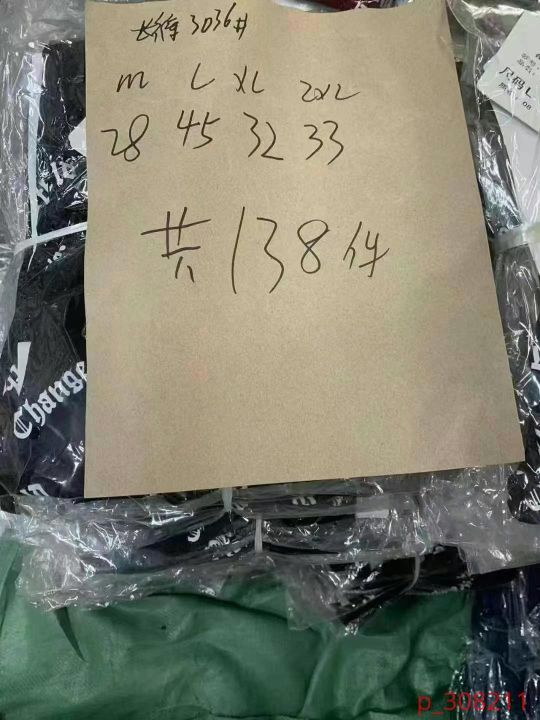 长徐 3036#
M L XL 2XL
28 45 32 33
共138件
Change
尺码L
08
p_308211